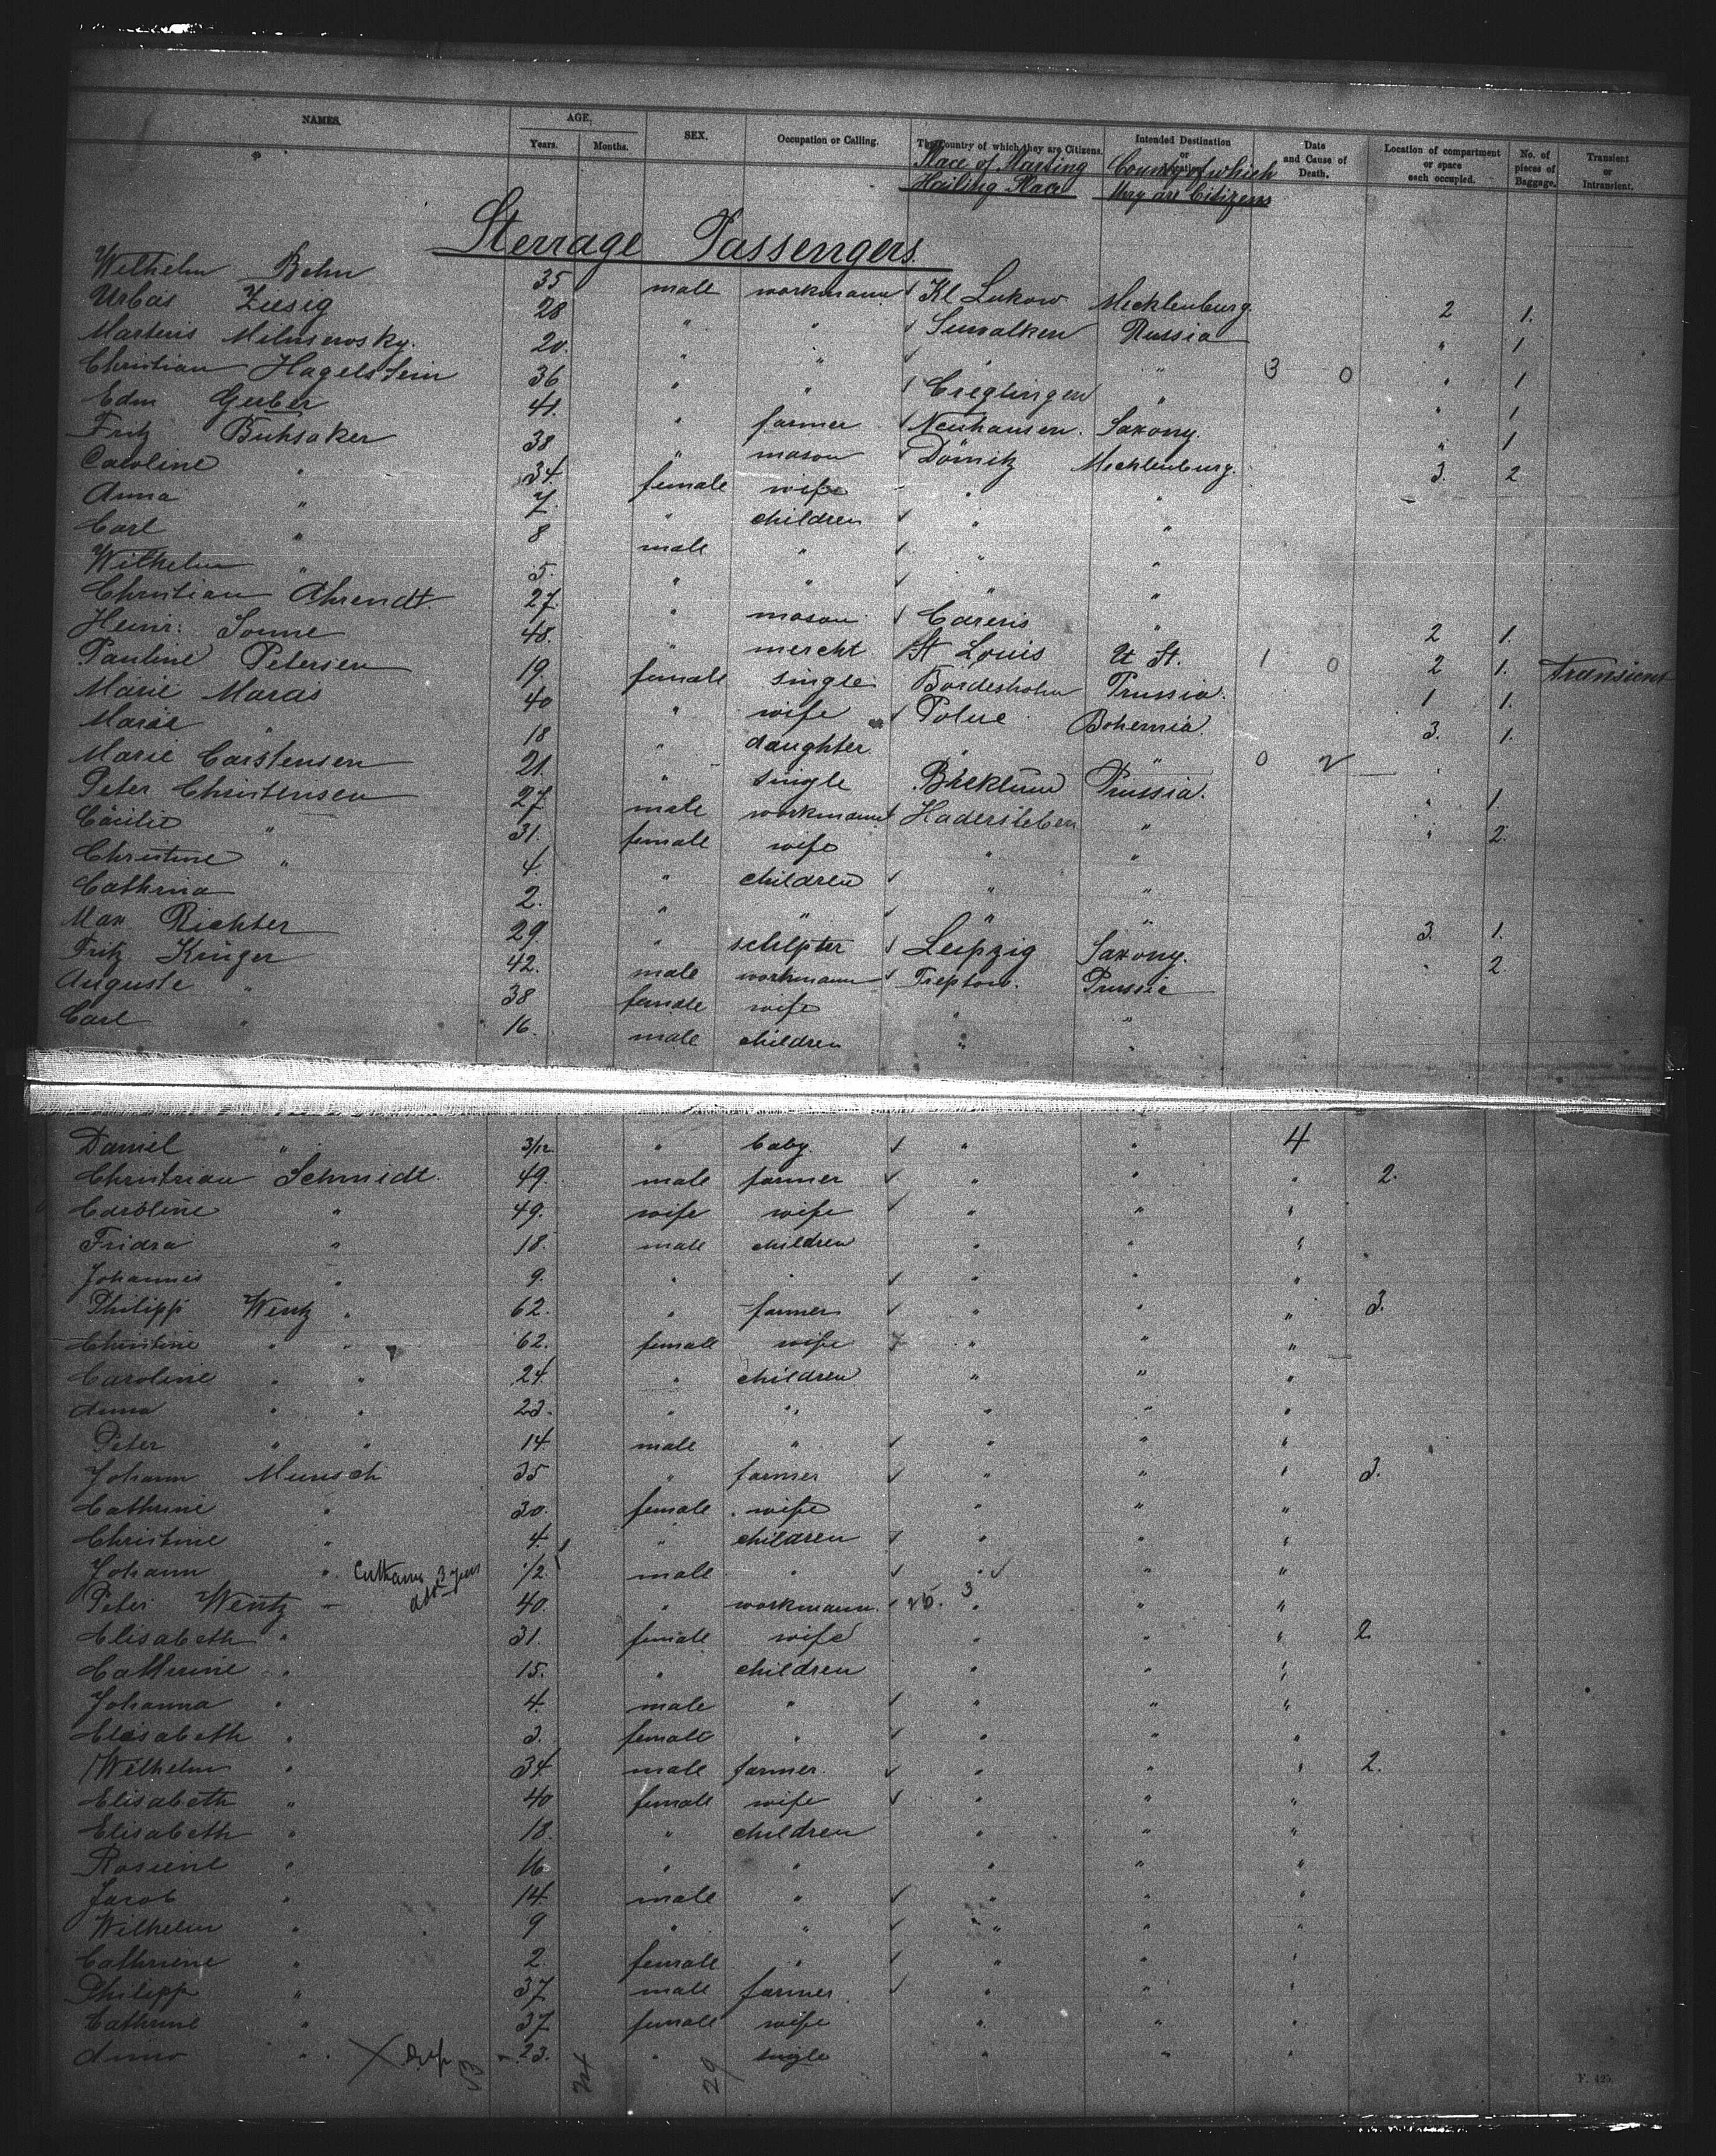 NAMES. AGE, SEX. Occupation or Calling. The Country of which they are Citizens. Intended Destination or Date and Cause of Death. Location of compartment or space each occupied. No. of pieces of Baggage. Transient or Intransient.
Years. Months.
Place of Hailing Place Country of which they are Citizens
Sterrage Passengers.
Wilhelm Behn 35 male workmann ✓ Kl Lukow Mecklenburg 2 1.
Urbas 28 " " ✓ Suwalken Russia " 1
20. " " ✓ " " 3 0 " 1
Christian Hagelstein 36 " " ✓ Creglingen " " 1
Edm Gerber 41. " farmer ✓ Neuhausen. Saxony. " 1
Fritz Buhsaker 38 " mason ✓ Dömitz Mecklenburg. 3. 2
Caroline " 34. female wife " "
Anna " 7. " children ✓ " "
Carl " 8 male " ✓ " "
Wilhelm " 5. " " ✓ " "
Christian Ahrendt. 27. " mason ✓ " 2 1.
Heinr. Sonne 48. " mercht. ✓ St Louis U St. 1 0 2 1. transient
Pauline Petersen 19. female single Bordesholm Prussia. 1 1.
Marie Maras 40 " wife ✓ Bohemia. 3. 1.
Marie " 18 " daughter. " " 0 2
Marie Carstensen 21. " single Breklum Prussia. " 1.
Peter Christensen 27 male workmann ✓ Hadersleben " " 2.
Cäcilie " 31. female wife " "
Christine " 4. " children ✓ " "
Cathrina 2. " " ✓ " "
Max Richter 29. " sculpter ✓ Leipzig Saxony. 3. 1.
Fritz Krüger 42. male workmann ✓ Treptow. Prussia " 2
Auguste " 38 female wife " "
Carl " 16. male children " "
Daniel " 3/12 " baby. ✓ " " 4
Christian Schmidt. 49. male farmer ✓ " " " 2.
Caroline " 49. wife wife ✓ " " "
Fridra " 18. male children " " "
Johannes " 9. " " ✓ " " "
Philipp Wentz " 62. " farmer ✓ " " " 3.
Christine " " 62. female wife " " "
Caroline " " 24. " children " " "
Anna " " 23. " " " " "
Peter " " 14. male " ✓ " " "
Johann Munsch 35 " farmer ✓ " " " 3.
Cathrine " 30. female wife " " "
Christine " 4. " children ✓ " " "
Johann " 1/2. male " ✓ " ✓ " "
Peter Wentz 40. " workmann. ✓ 3 " " "
Elisabeth " 31. female wife " " " 2
Catherine " 15. " children " " "
Johanna " 4. male " ✓ " " "
Elisabeth " 3. female " ✓ " " "
Wilhelm " 34. male farmer. ✓ " " " 2.
Elisabeth " 40 female wife ✓ " " "
Elisabeth " 18. " children " " "
Rosiene " 16 " " " " "
Jacob " 14. male " ✓ " " "
Wilhelm " 9 " " ✓ " " "
Cathriene " 2. female " ✓ " " "
Philipp " 37. male farmer. ✓ " " "
Cathrine " 37. female wife " " "
Anna " 23. " single " " "
F. 425.